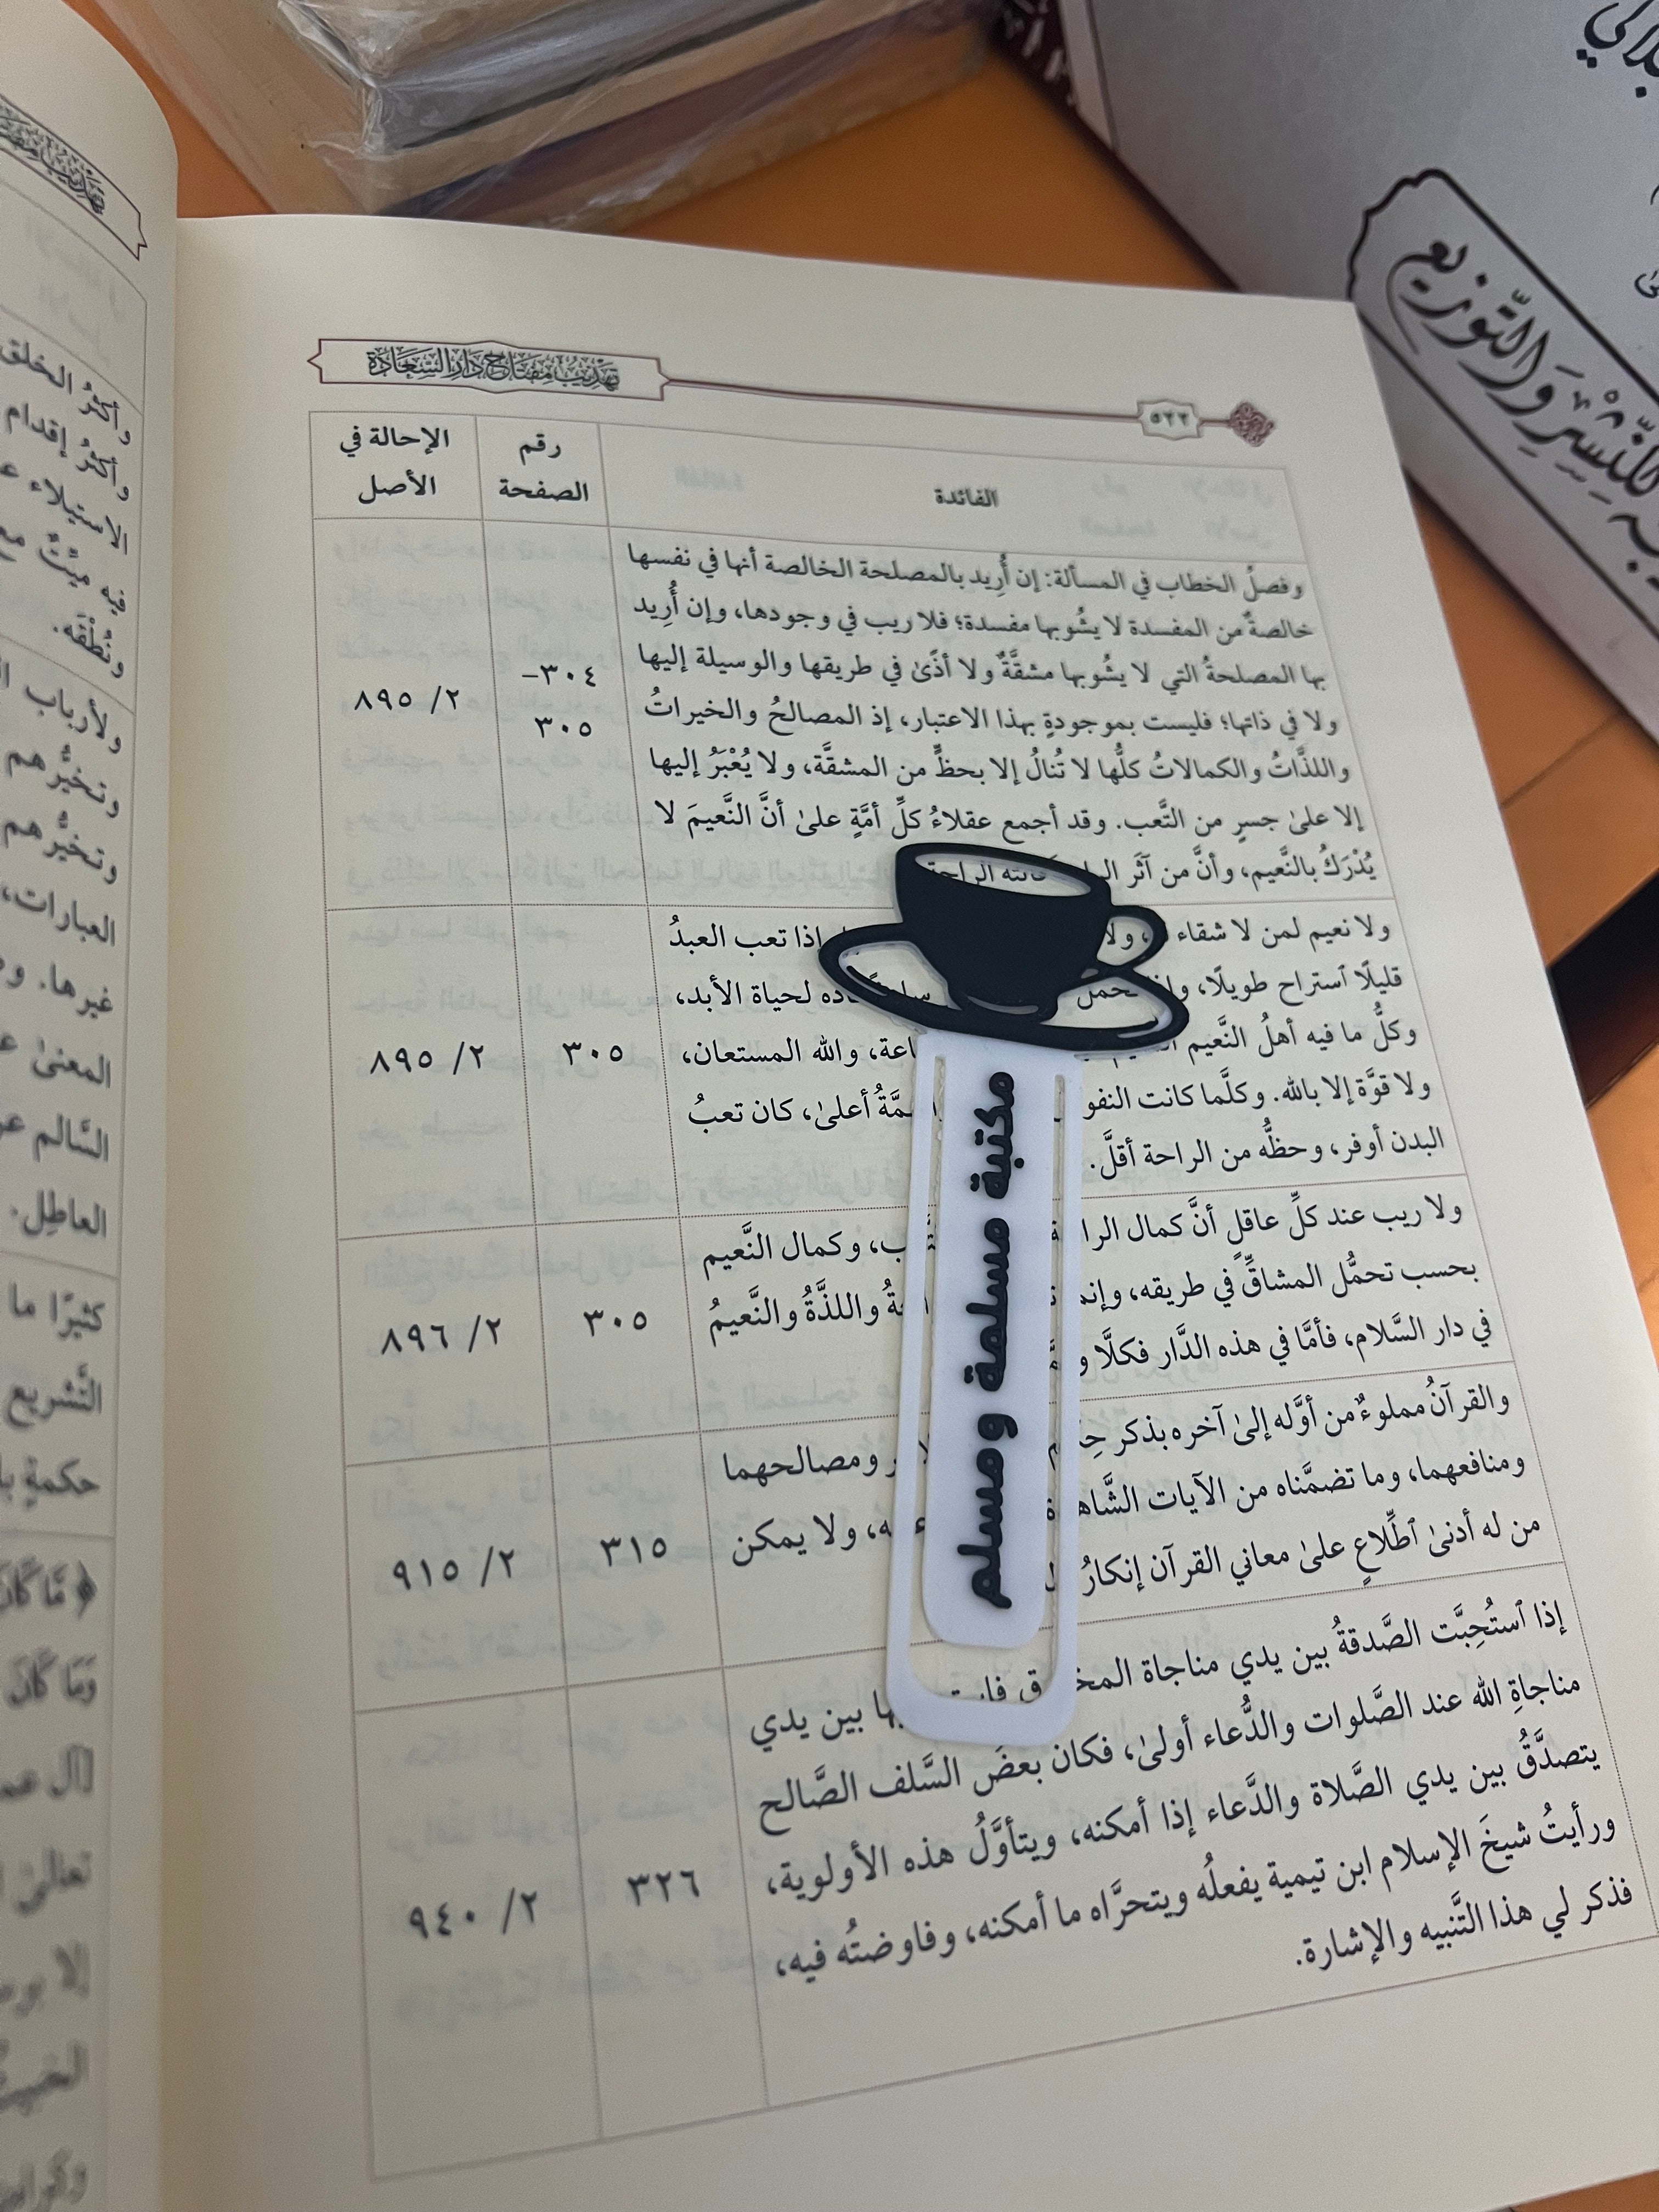 تهذيب مفتاح دار السعادة
٥٢٢
الفائدة
رقم الصفحة
الإحالة في الأصل
وفصلُ الخطاب في المسألة: إن أُريد بالمصلحة الخالصة أنها في نفسها
خالصةٌ من المفسدة لا يشُوبها مفسدة؛ فلا ريب في وجودها، وإن أُريد
بها المصلحةُ التي لا يشُوبها مشقَّةٌ ولا أذًى في طريقها والوسيلة إليها
ولا في ذاتها؛ فليست بموجودةٍ بهذا الاعتبار، إذ المصالحُ والخيراتُ
واللذَّاتُ والكمالاتُ كلُّها لا تُنالُ إلا بحظٍّ من المشقَّة، ولا يُعْبَرُ إليها
إلا علىٰ جسرٍ من التَّعب. وقد أجمع عقلاءُ كلِّ أمَّةٍ علىٰ أنَّ النَّعيمَ لا
يُدْرَكُ بالنَّعيم، وأنَّ من آثَر فاتته الراحة
٣٠٤-
٣٠٥
٢/ ٨٩٥
ولا نعيم لمن لا شقاء ولا إذا تعب العبدُ
قليلًا ٱستراح طويلًا، لحياة الأبد،
وكلُّ ما فيه أهلُ النَّعيم والله المستعان،
ولا قوَّة إلا بالله. وكلَّما كانت أعلىٰ، كان تعبُ
البدن أوفر، وحظُّه من الراحة أقلَّ.
٣٠٥
٢/ ٨٩٥
ولا ريب عند كلِّ عاقلٍ أنَّ كمال وكمال النَّعيم
بحسب تحمُّل المشاقِّ في طريقه، واللذَّةُ والنَّعيمُ
في دار السَّلام، فأمَّا في هذه الدَّار فكلَّا
٣٠٥
٢/ ٨٩٦
والقرآنُ مملوءٌ من أوَّله إلىٰ آخره بذكر ومصالحهما
ومنافعهما، وما تضمَّناه من الآيات ولا يمكن
من له أدنىٰ ٱطِّلاعٍ علىٰ معاني القرآن إنكارُ
٣١٥
٢/ ٩١٥
إذا ٱستُحِبَّت الصَّدقةُ بين يدي مناجاة بين يدي
مناجاةِ الله عند الصَّلوات والدُّعاء أولىٰ، فكان بعضَ السَّلف الصَّالح
يتصدَّقُ بين يدي الصَّلاة والدَّعاء إذا أمكنه، ويتأوَّلُ هذه الأولوية،
ورأيتُ شيخَ الإسلام ابن تيمية يفعلُه ويتحرَّاه ما أمكنه، وفاوضتُه فيه،
فذكر لي هذا التَّنبيه والإشارة.
٣٢٦
٢/ ٩٤٠
مكتبة مسلمة ومسلم
وأكثرُ الخلق
وأكثرُ إقدام
الاستيلاء
فيه ميِّتٌ
ونُطْقَه.
ولأرباب
وتخيُّرهم
وتخيُّرهم
العبارات،
غيرها.
المعنىٰ
السَّالم
العاطِل.
كثيرًا ما
التَّشريع
حكمةٍ
﴿ مَّا كَانَ
وَمَا كَانَ
تعالىٰ
إلا
للنَّشْرِ وَالتَّوزيع